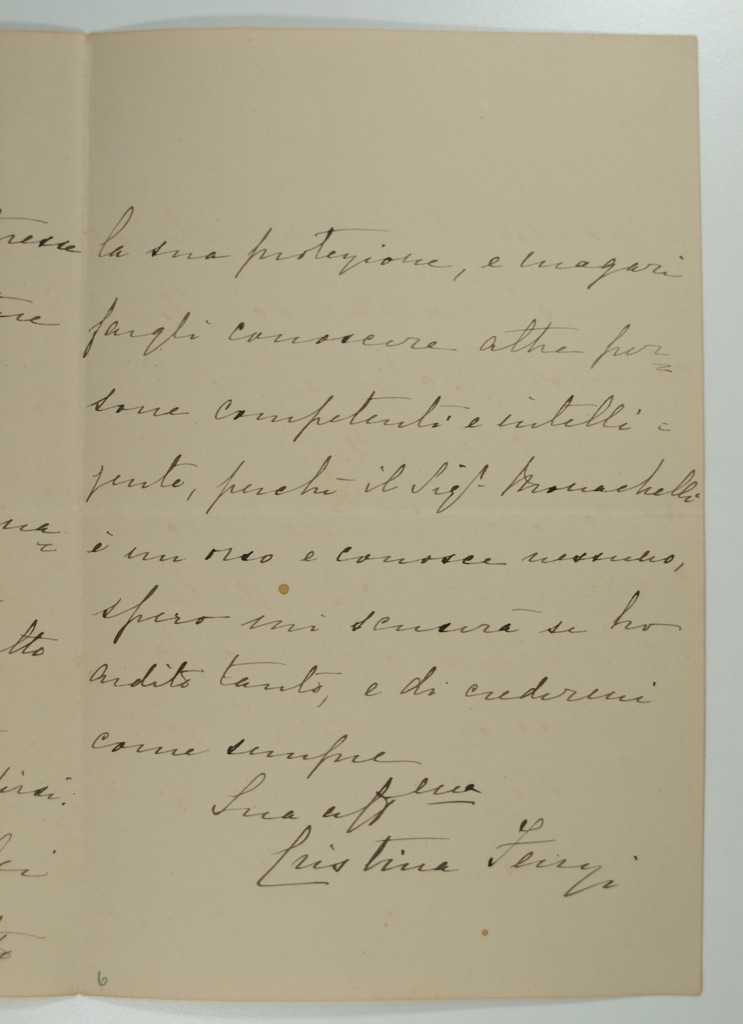 la sua protezione, e magari
fargli conoscere altre per=
sone competenti e intelli=
gente, perchè il Sigr. Monachelli
è un orso e conosce nessuno,
spero mi scuserà se ho
ardito tanto, e di credermi
come sempre
Sua affema
Cristina
6
na=
tto